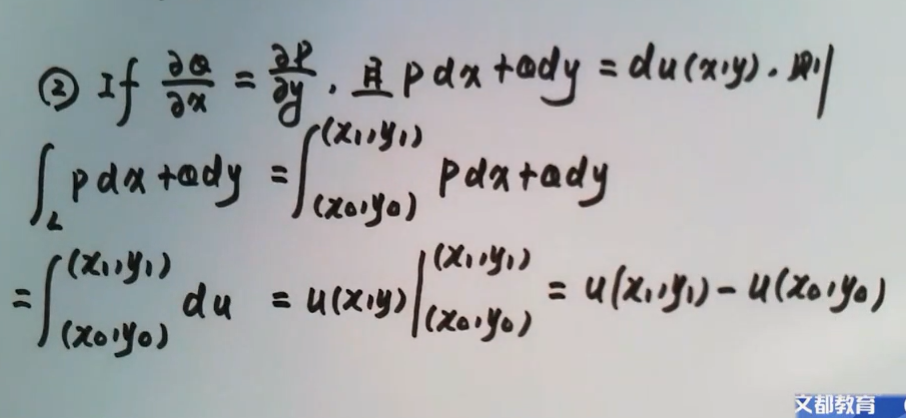 ② If ∂Q/∂x = ∂P/∂y , 且 Pdx+Qdy = du(x,y). 则
∫_L Pdx+Qdy = ∫_(x₀,y₀)^(x₁,y₁) Pdx+Qdy
= ∫_(x₀,y₀)^(x₁,y₁) du = u(x,y) |_(x₀,y₀)^(x₁,y₁) = u(x₁,y₁) - u(x₀,y₀)
文都教育